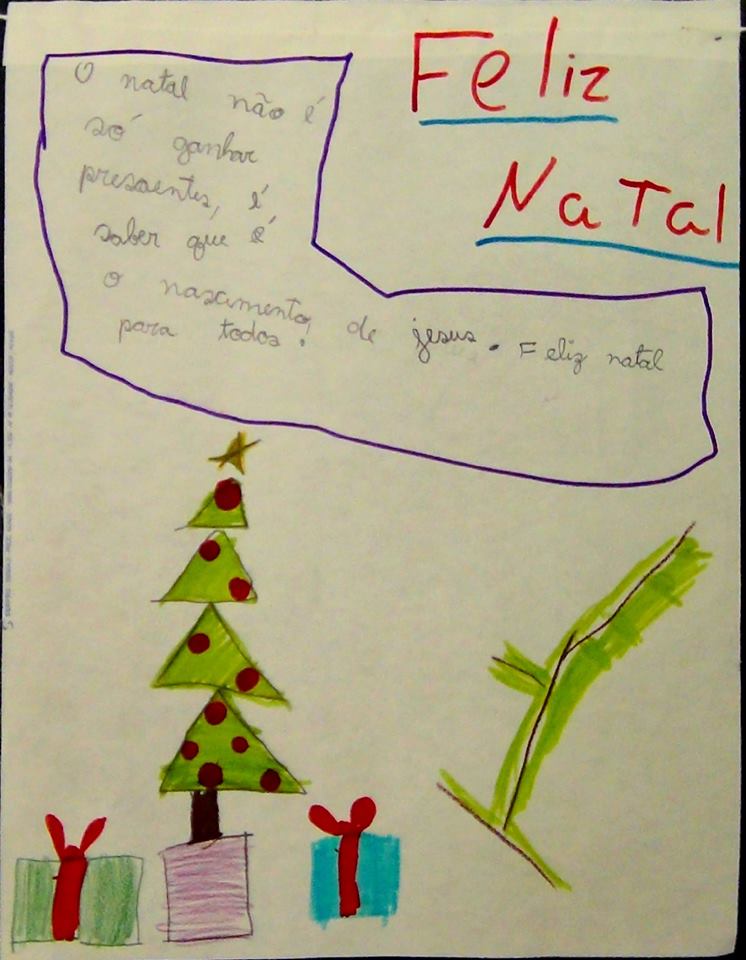 Feliz
Natal
O natal não é
só ganhar
presaentes, é
saber que é
o nascimento de jesus. Feliz natal
para todos!